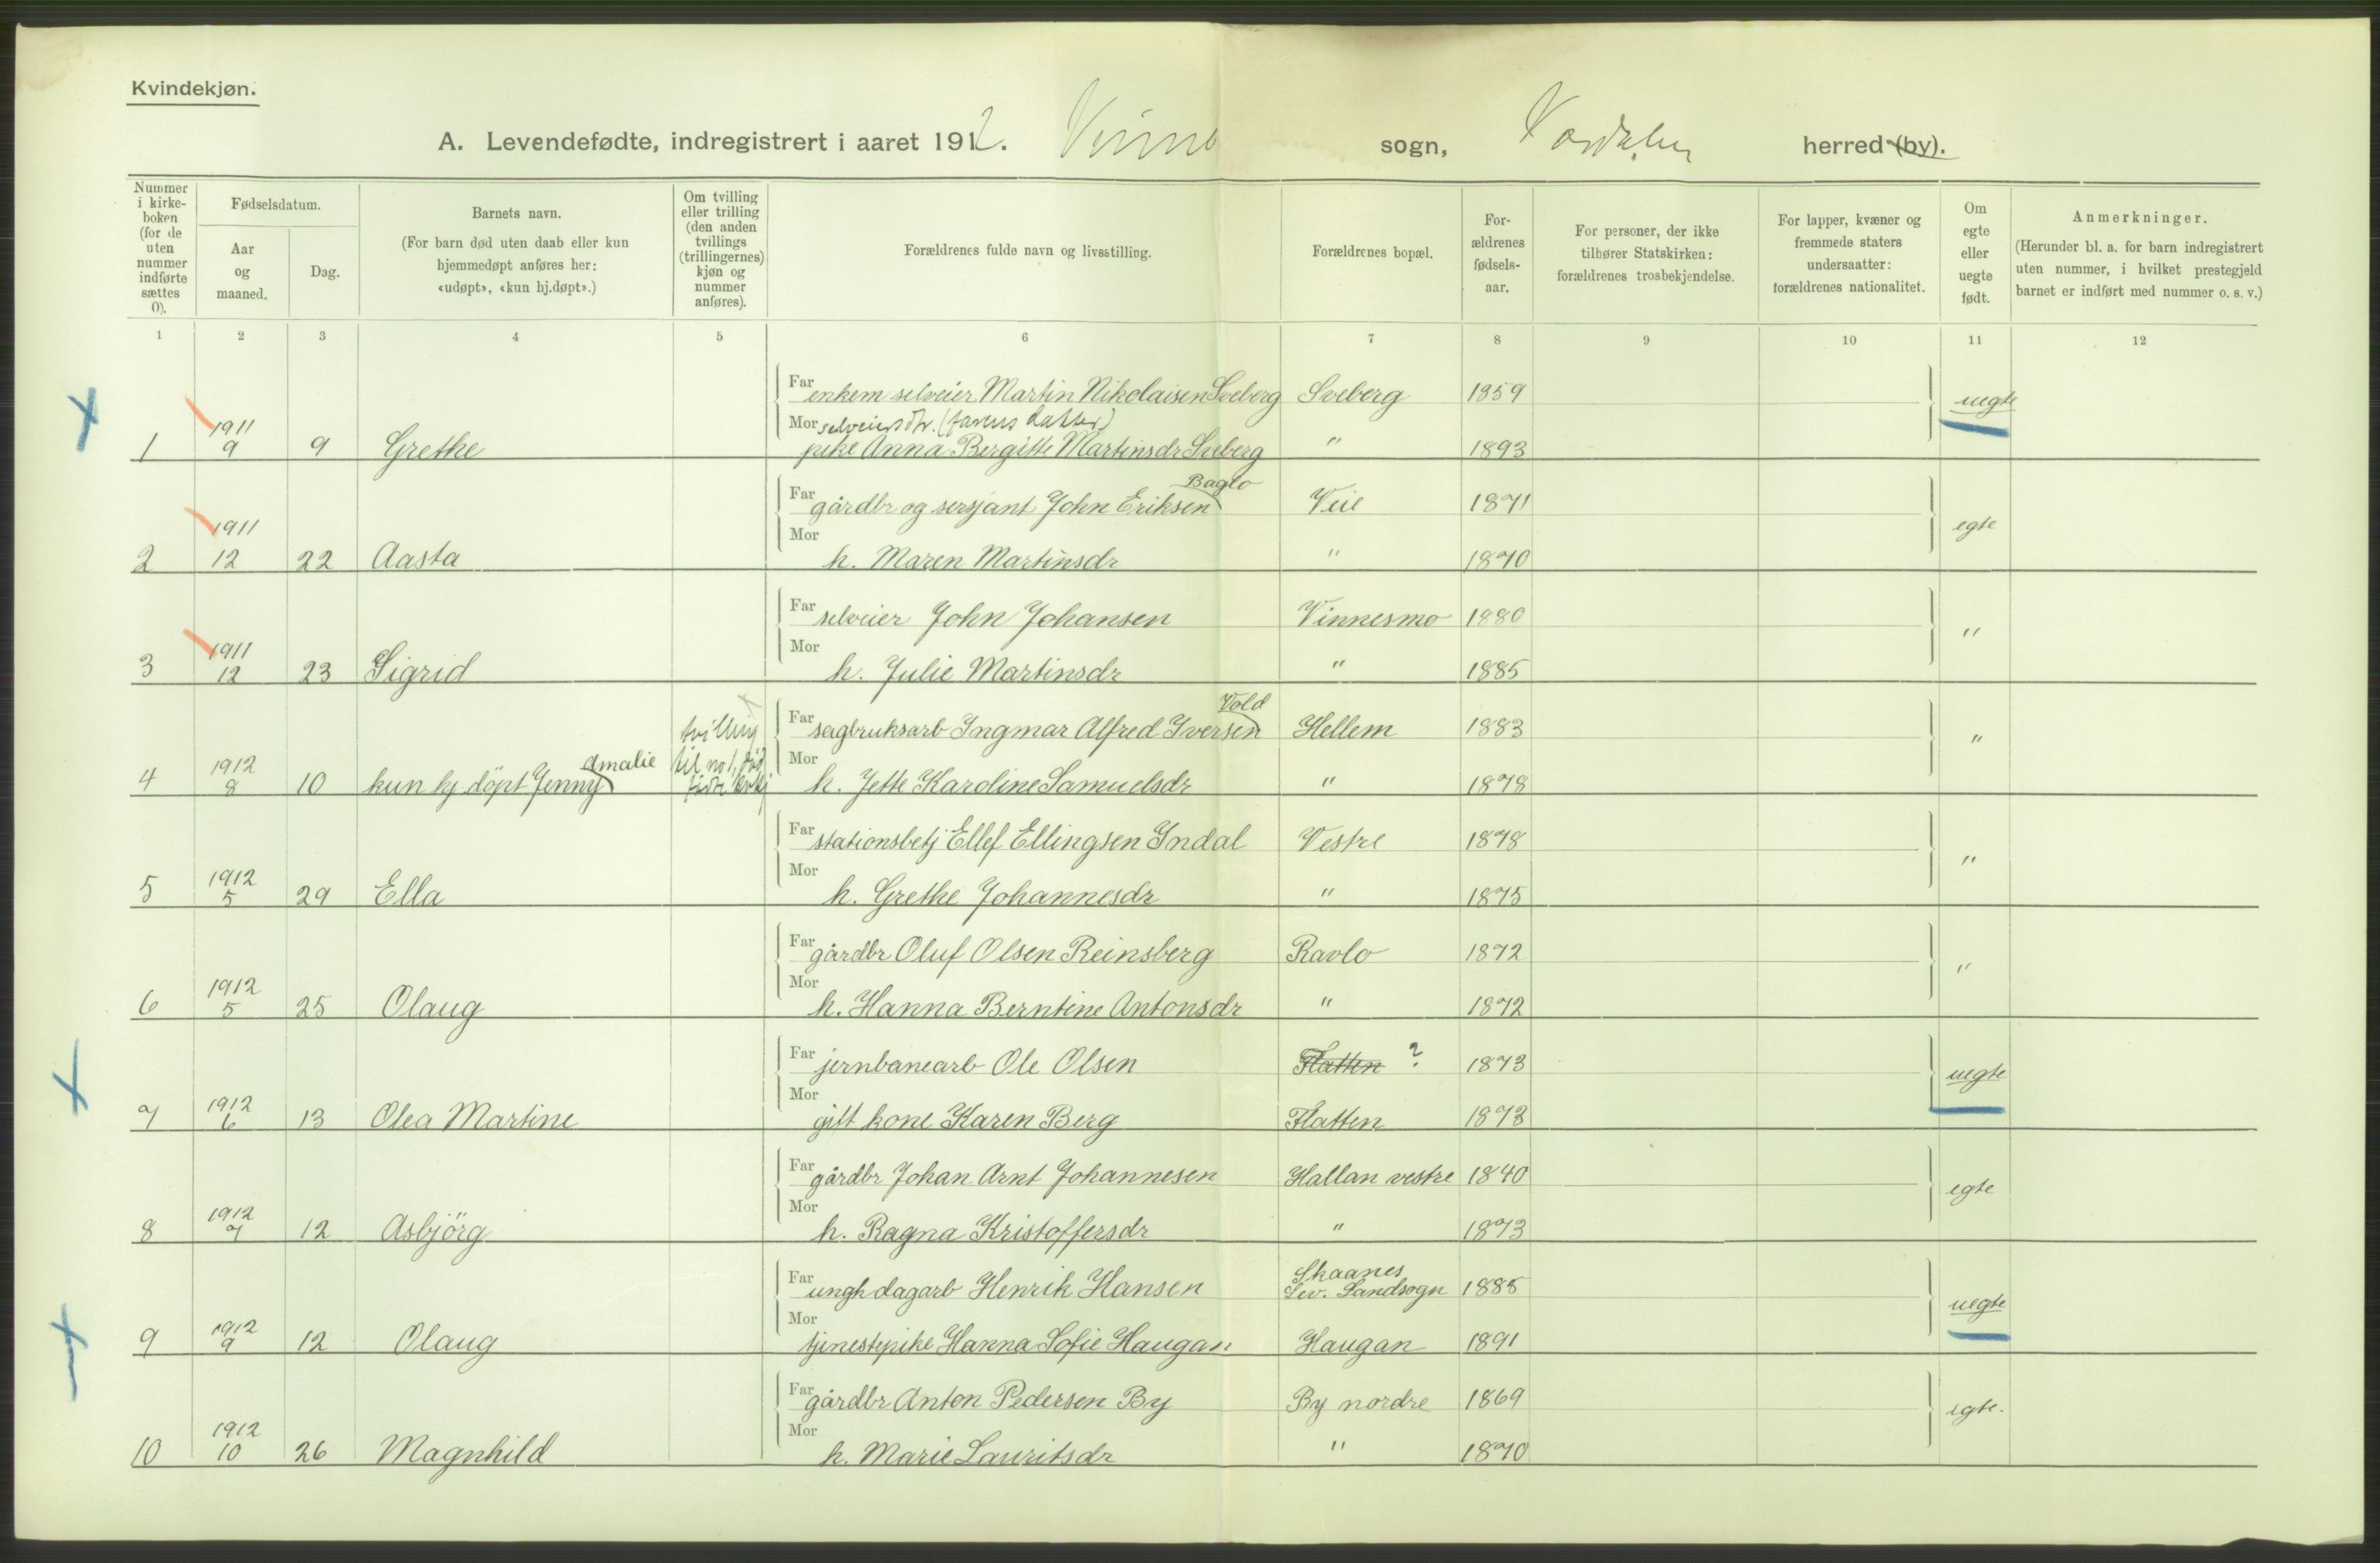 Kvindekjøn.
A. Levendefødte, indregistrert i aaret 1912. Vinne sogn, Værdalen herred (by).
Nummer i kirkeboken (for de uten nummer indførte sættes 0).
Fødselsdatum.
Aar og maaned.
Dag.
Barnets navn.
(For barn død uten daab eller kun hjemmedøpt anføres her: «udøpt», «kun hj.døpt».)
Om tvilling eller trilling (den anden tvillings (trillingernes) kjøn og nummer anføres).
Forældrenes fulde navn og livsstilling.
Forældrenes bopæl.
Forældrenes fødselsaar.
For personer, der ikke tilhører Statskirken: forældrenes trosbekjendelse.
For lapper, kvæner og fremmede staters undersaatter: forældrenes nationalitet.
Om egte eller uegte født.
Anmerkninger.
(Herunder bl. a. for barn indregistrert uten nummer, i hvilket prestegjeld barnet er indført med nummer o. s. v.)
1 2 3 4 5 6 7 8 9 10 11 12
Far enkem selveier Martin Nikolaisen Sveberg Sveberg 1859 uegte
Mor selveiersdtr. (farens datter)
1 1911 9 9 Grethe pike Anna Bergitte Martinsdr Sveberg " 1893
Baglo
Far gårdbr og sersjant John Eriksen Veie 1871 egte
Mor
2 1911 12 22 Aasta h. Maren Martinsdr " 1870
Far selveier John Johansen Vinnesmo 1880 "
Mor
3 1911 12 23 Sigrid h. Julie Martinsdr " 1885
Vold
tvilling Far sagbruksarb Ingmar Alfred Iversen Hellem 1883 "
Amalie til no 1, død Mor
4 1912 8 10 kun hj. döpt Jenny h. Jette Karoline Samuelsdr " 1878
Far stationsbetj Ellef Ellingsen Indal Vestre 1878 "
Mor
5 1912 5 29 Ella h. Grethe Johannesdr " 1875
Far gårdbr Oluf Olsen Reinsberg Ravlo 1872 "
Mor
6 1912 5 25 Olaug h. Hanna Berntine Antonsdr " 1872
Far jernbanearb Ole Olsen Flatten ? 1873 uegte
Mor
7 1912 6 13 Olea Martine gift kone Karen Berg Flatten 1873
Far gårdbr Johan Arnt Johannesen Hallan vestre 1840 egte
Mor
8 1912 7 12 Asbjörg h. Ragna Kristoffersdr " 1873
Skaanes
Far ungk dagarb Henrik Hansen Lev. Landsogn 1885 uegte
Mor
9 1912 9 12 Olaug tjenestepike Hanna Sofie Haugan Haugan 1891
Far gårdbr Anton Pedersen By By nordre 1869 egte.
Mor
10 1912 10 26 Magnhild h. Marie Lauritsdr " 1870